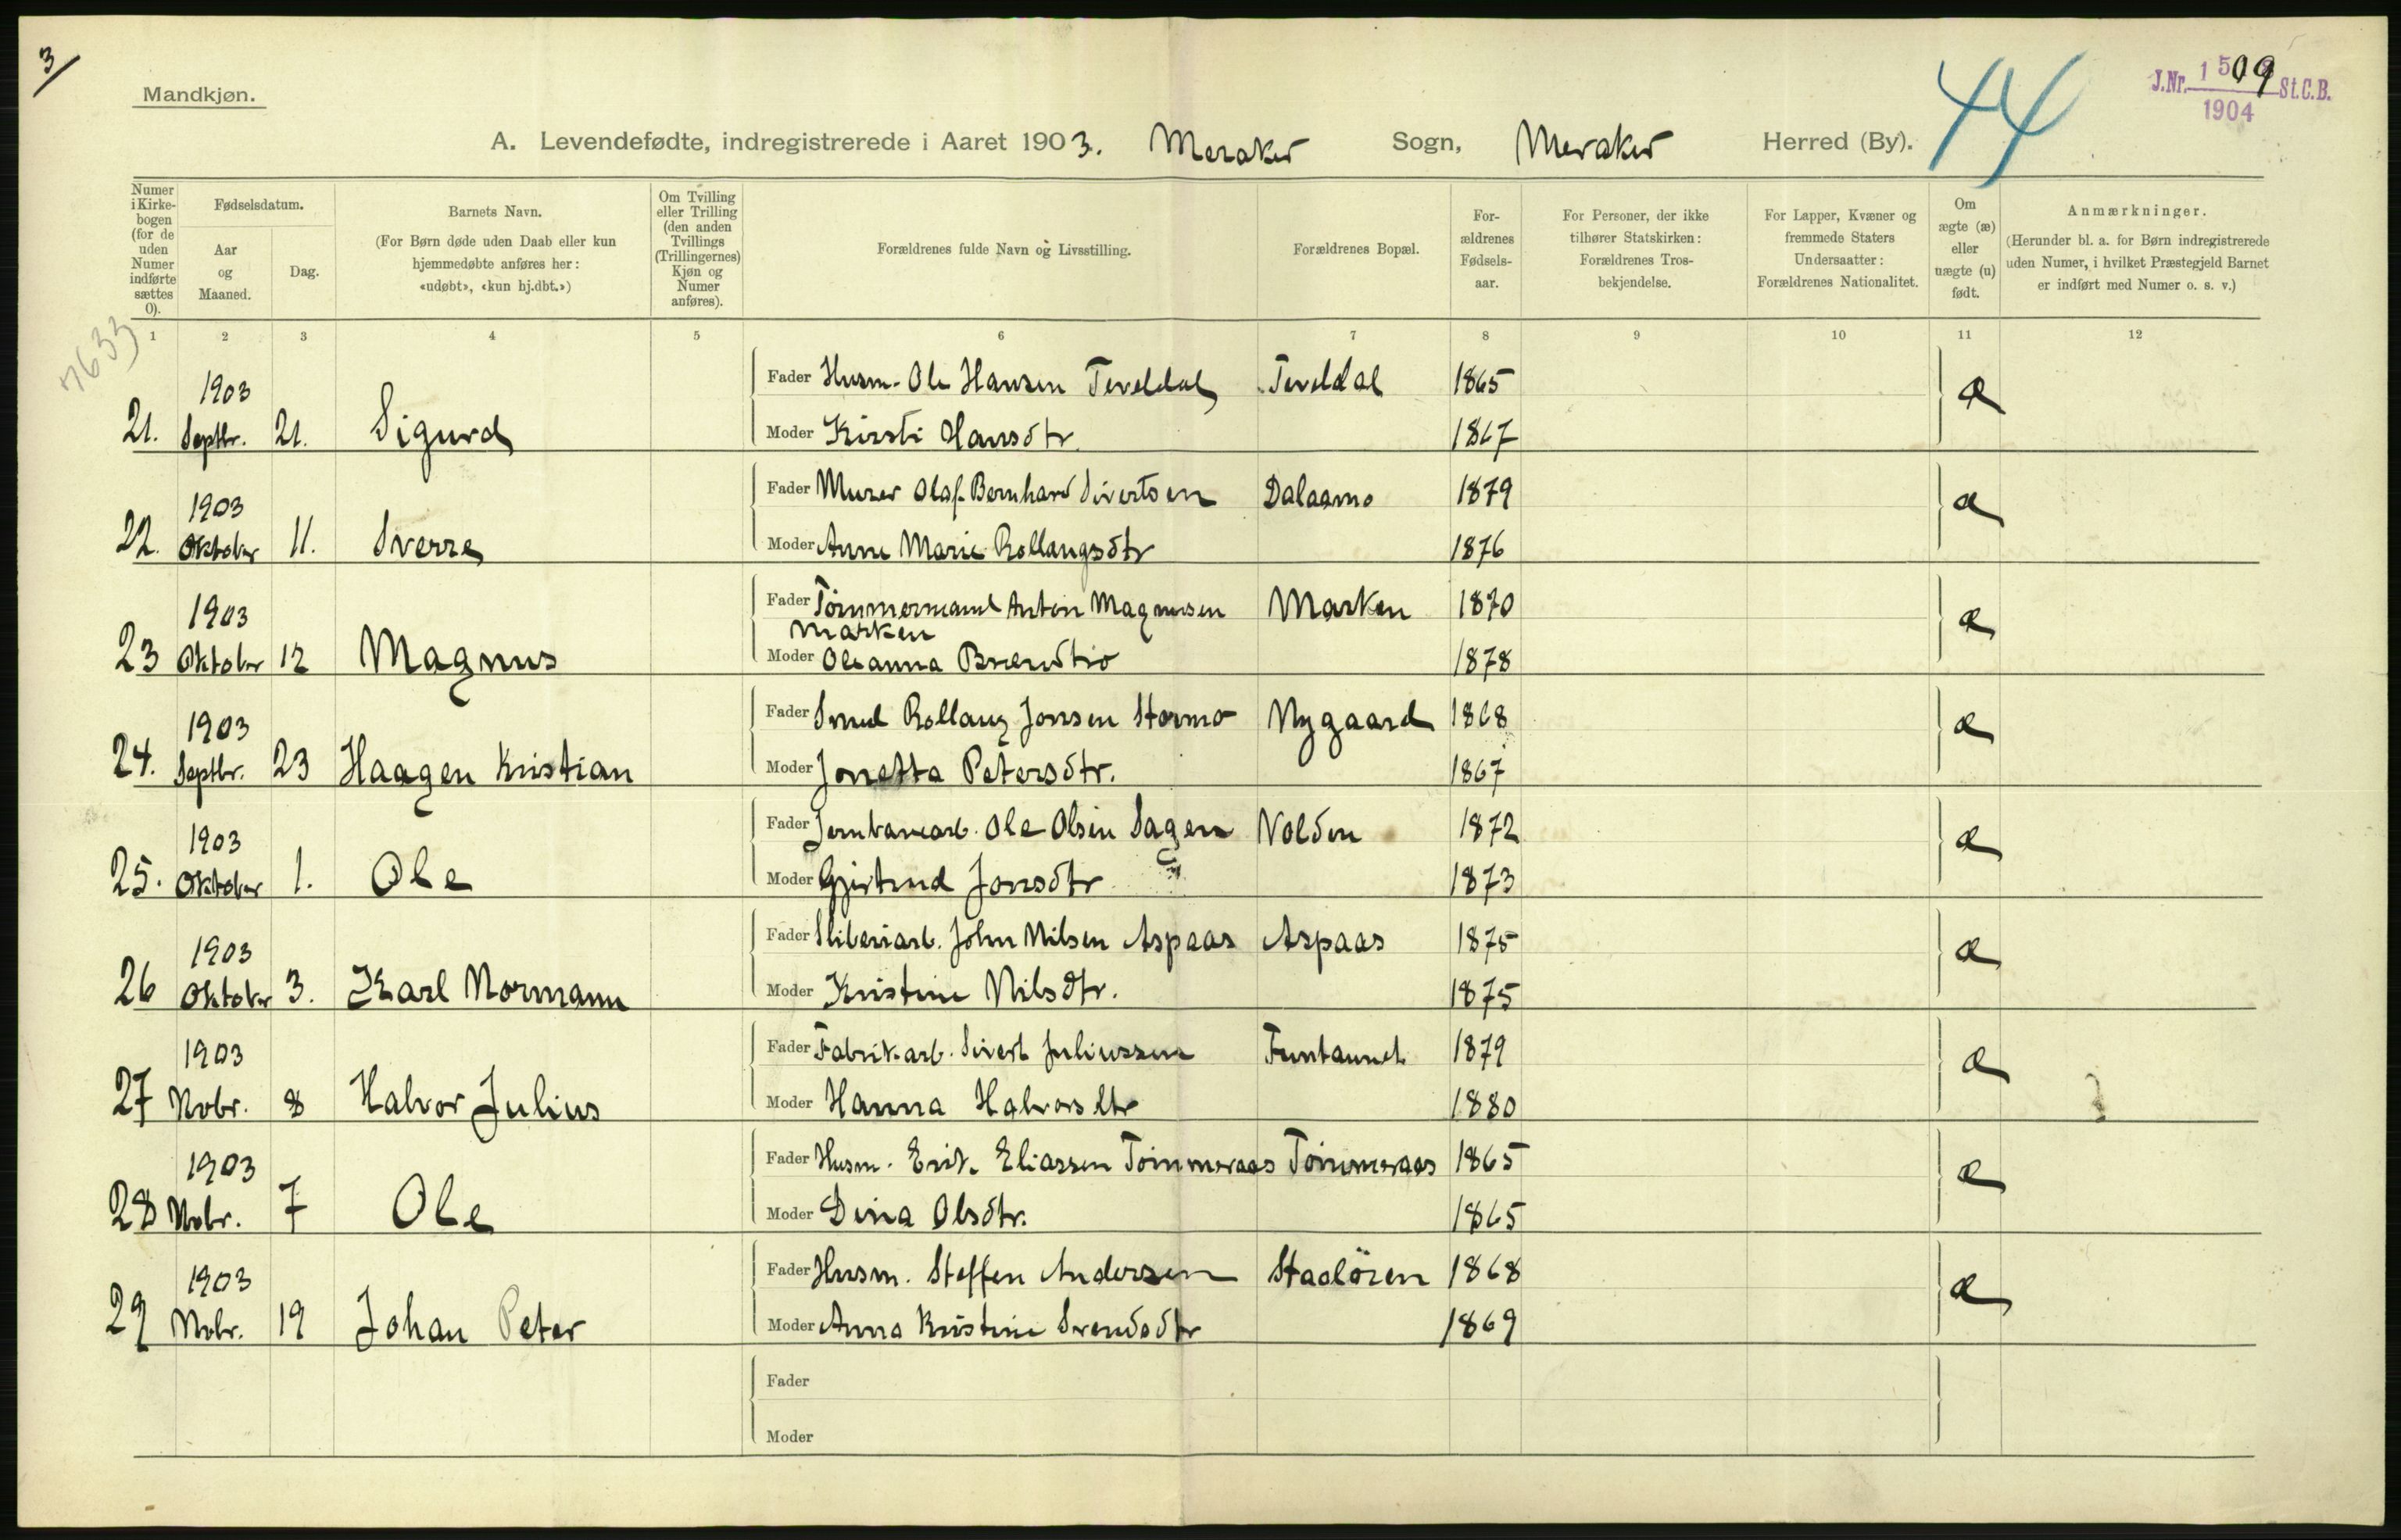 3/
Mandkjøn.
44
J.Nr. 1509 St.C.B.
1904
A. Levendefødte, indregistrerede i Aaret 1903. Meraker Sogn, Meraker Herred (By).
Numer i Kirkebogen (for de uden Numer indførte sættes 0).
Fødselsdatum.
Aar og Maaned.
Dag.
Barnets Navn.
(For Børn døde uden Daab eller kun hjemmedøbte anføres her: «udøbt», «kun hj.dbt.»)
Om Tvilling eller Trilling (den anden Tvillings (Trillingernes) Kjøn og Numer anføres).
Forældrenes fulde Navn og Livsstilling.
Forældrenes Bopæl.
For-ældrenes Fødsels-aar.
For Personer, der ikke tilhører Statskirken: Forældrenes Tros-bekjendelse.
For Lapper, Kvæner og fremmede Staters Undersaatter: Forældrenes Nationalitet.
Om ægte (æ) eller uægte (u) født.
Anmærkninger.
(Herunder bl. a. for Børn indregistrerede uden Numer, i hvilket Præstegjeld Barnet er indført med Numer o. s. v.)
1 2 3 4 5 6 7 8 9 10 11 12
7633
1903 Fader Husm. Ole Hansen Teveldal Teveldal 1865 æ
21. Septbr. 21. Sigurd Moder Kirsti Hansdtr. 1867
1903 Fader Murer Olaf Bernhard Sivertsen Dalaamo 1879 æ
22. Oktober 11. Sverre Moder Anne Marie Rollaugsdtr 1876
1903 Fader Tömmermand Anton Magnusen Marken 1870 æ
Marken
23 Oktober 12 Magnus Moder Oleanna 1878
1903 Fader Smed Rollaug Jonsen Stormo Nygaard 1868 æ
24. Septbr. 23 Haagen Kristian Moder Jonetta Petersdtr. 1867
1903 Fader Jernbanearb. Ole Olsen Sagen Volden 1872 æ
25. Oktober 1. Ole Moder Gjertrud Jonsdtr 1873
1903 Fader Sliberiarb. John Nilsen Aspaas Aspaas 1875 æ
26 Oktober 3. Karl Normann Moder Kristine Nilsdtr. 1875
1903 Fader Fabrikarb. Sivert Juliussen Funtaunet 1879 æ
27 Nobr. 8 Halvor Julius Moder Hanna Halvorsdtr 1880
1903 Fader Husm. Erik Eliassen Tömmeraas Tömmeraas 1865 æ
28 Nobr. 7 Ole Moder Dina Olsdtr. 1865
1903 Fader Husm. Steffen Andersen Staalören 1868 æ
29 Nobr. 19 Johan Peter Moder Anna Kristine Svendsdtr 1869
Fader
Moder